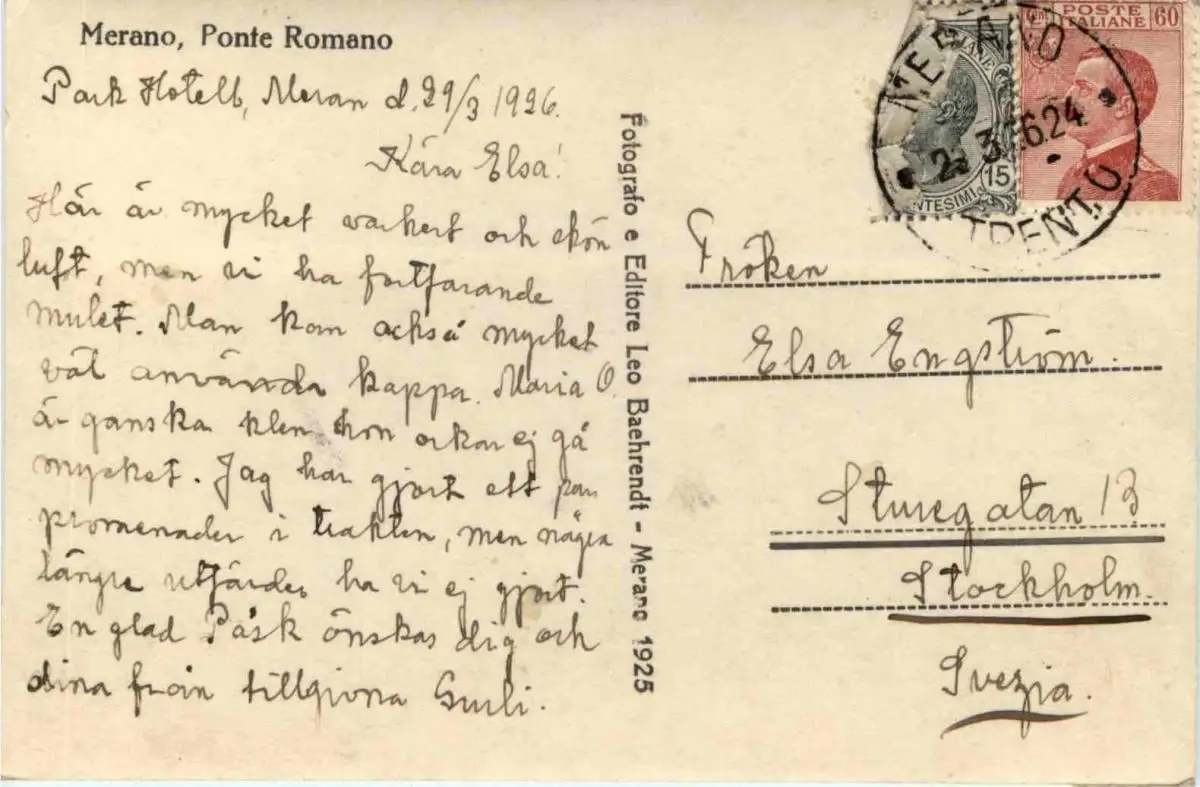 Merano, Ponte Romano
Park Hotell, Meran d. 29/3 1926.
Kära Elsa!
Här är mycket vackert och skön
luft, men vi ha fortfarande
mulet. Man kan också mycket
väl använda kappa. Maria O.
är ganska klen hon orkar ej gå
mycket. Jag har gjort ett par
promenader i trakten, men några
längre utfärder ha vi ej gjort.
En glad Påsk önskas dig och
dina från tillgivna
Fotografo e Editore Leo Baehrendt - Merano 1925
POSTE
ITALIANE 60
Cent
15
CENTESIMI
MERANO
TRENTO
Fröken
Elsa Engström.
Sturegatan 13
Stockholm.
Svezia.